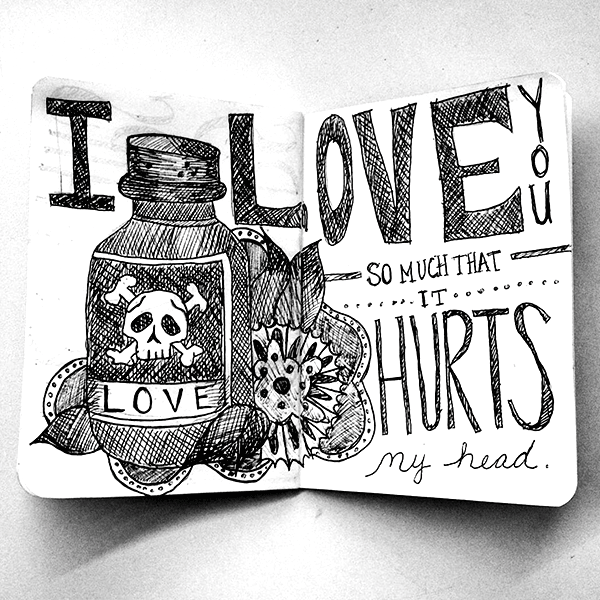 I LOVE YOU
SO MUCH THAT
IT
HURTS
my head.
LOVE